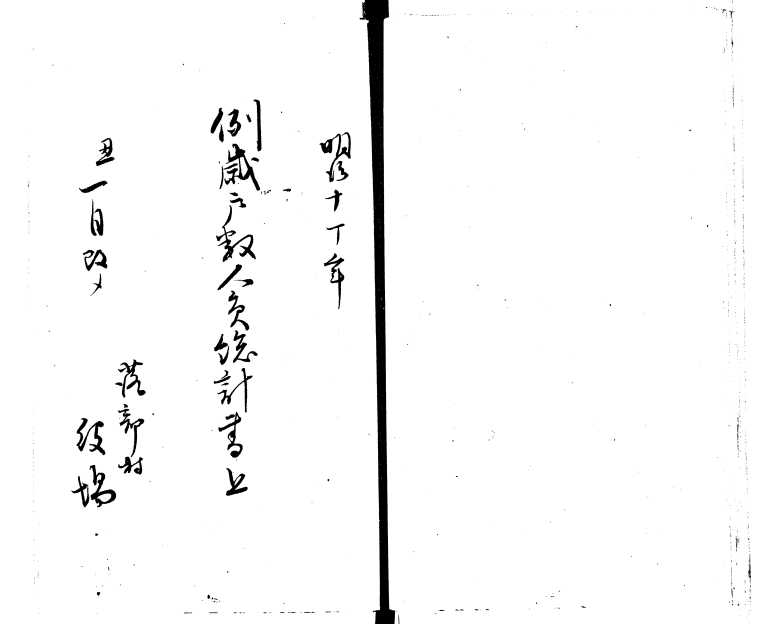 明治十丁年
例歳戸数人員総計書上
丑一月改〆
落部村
役場